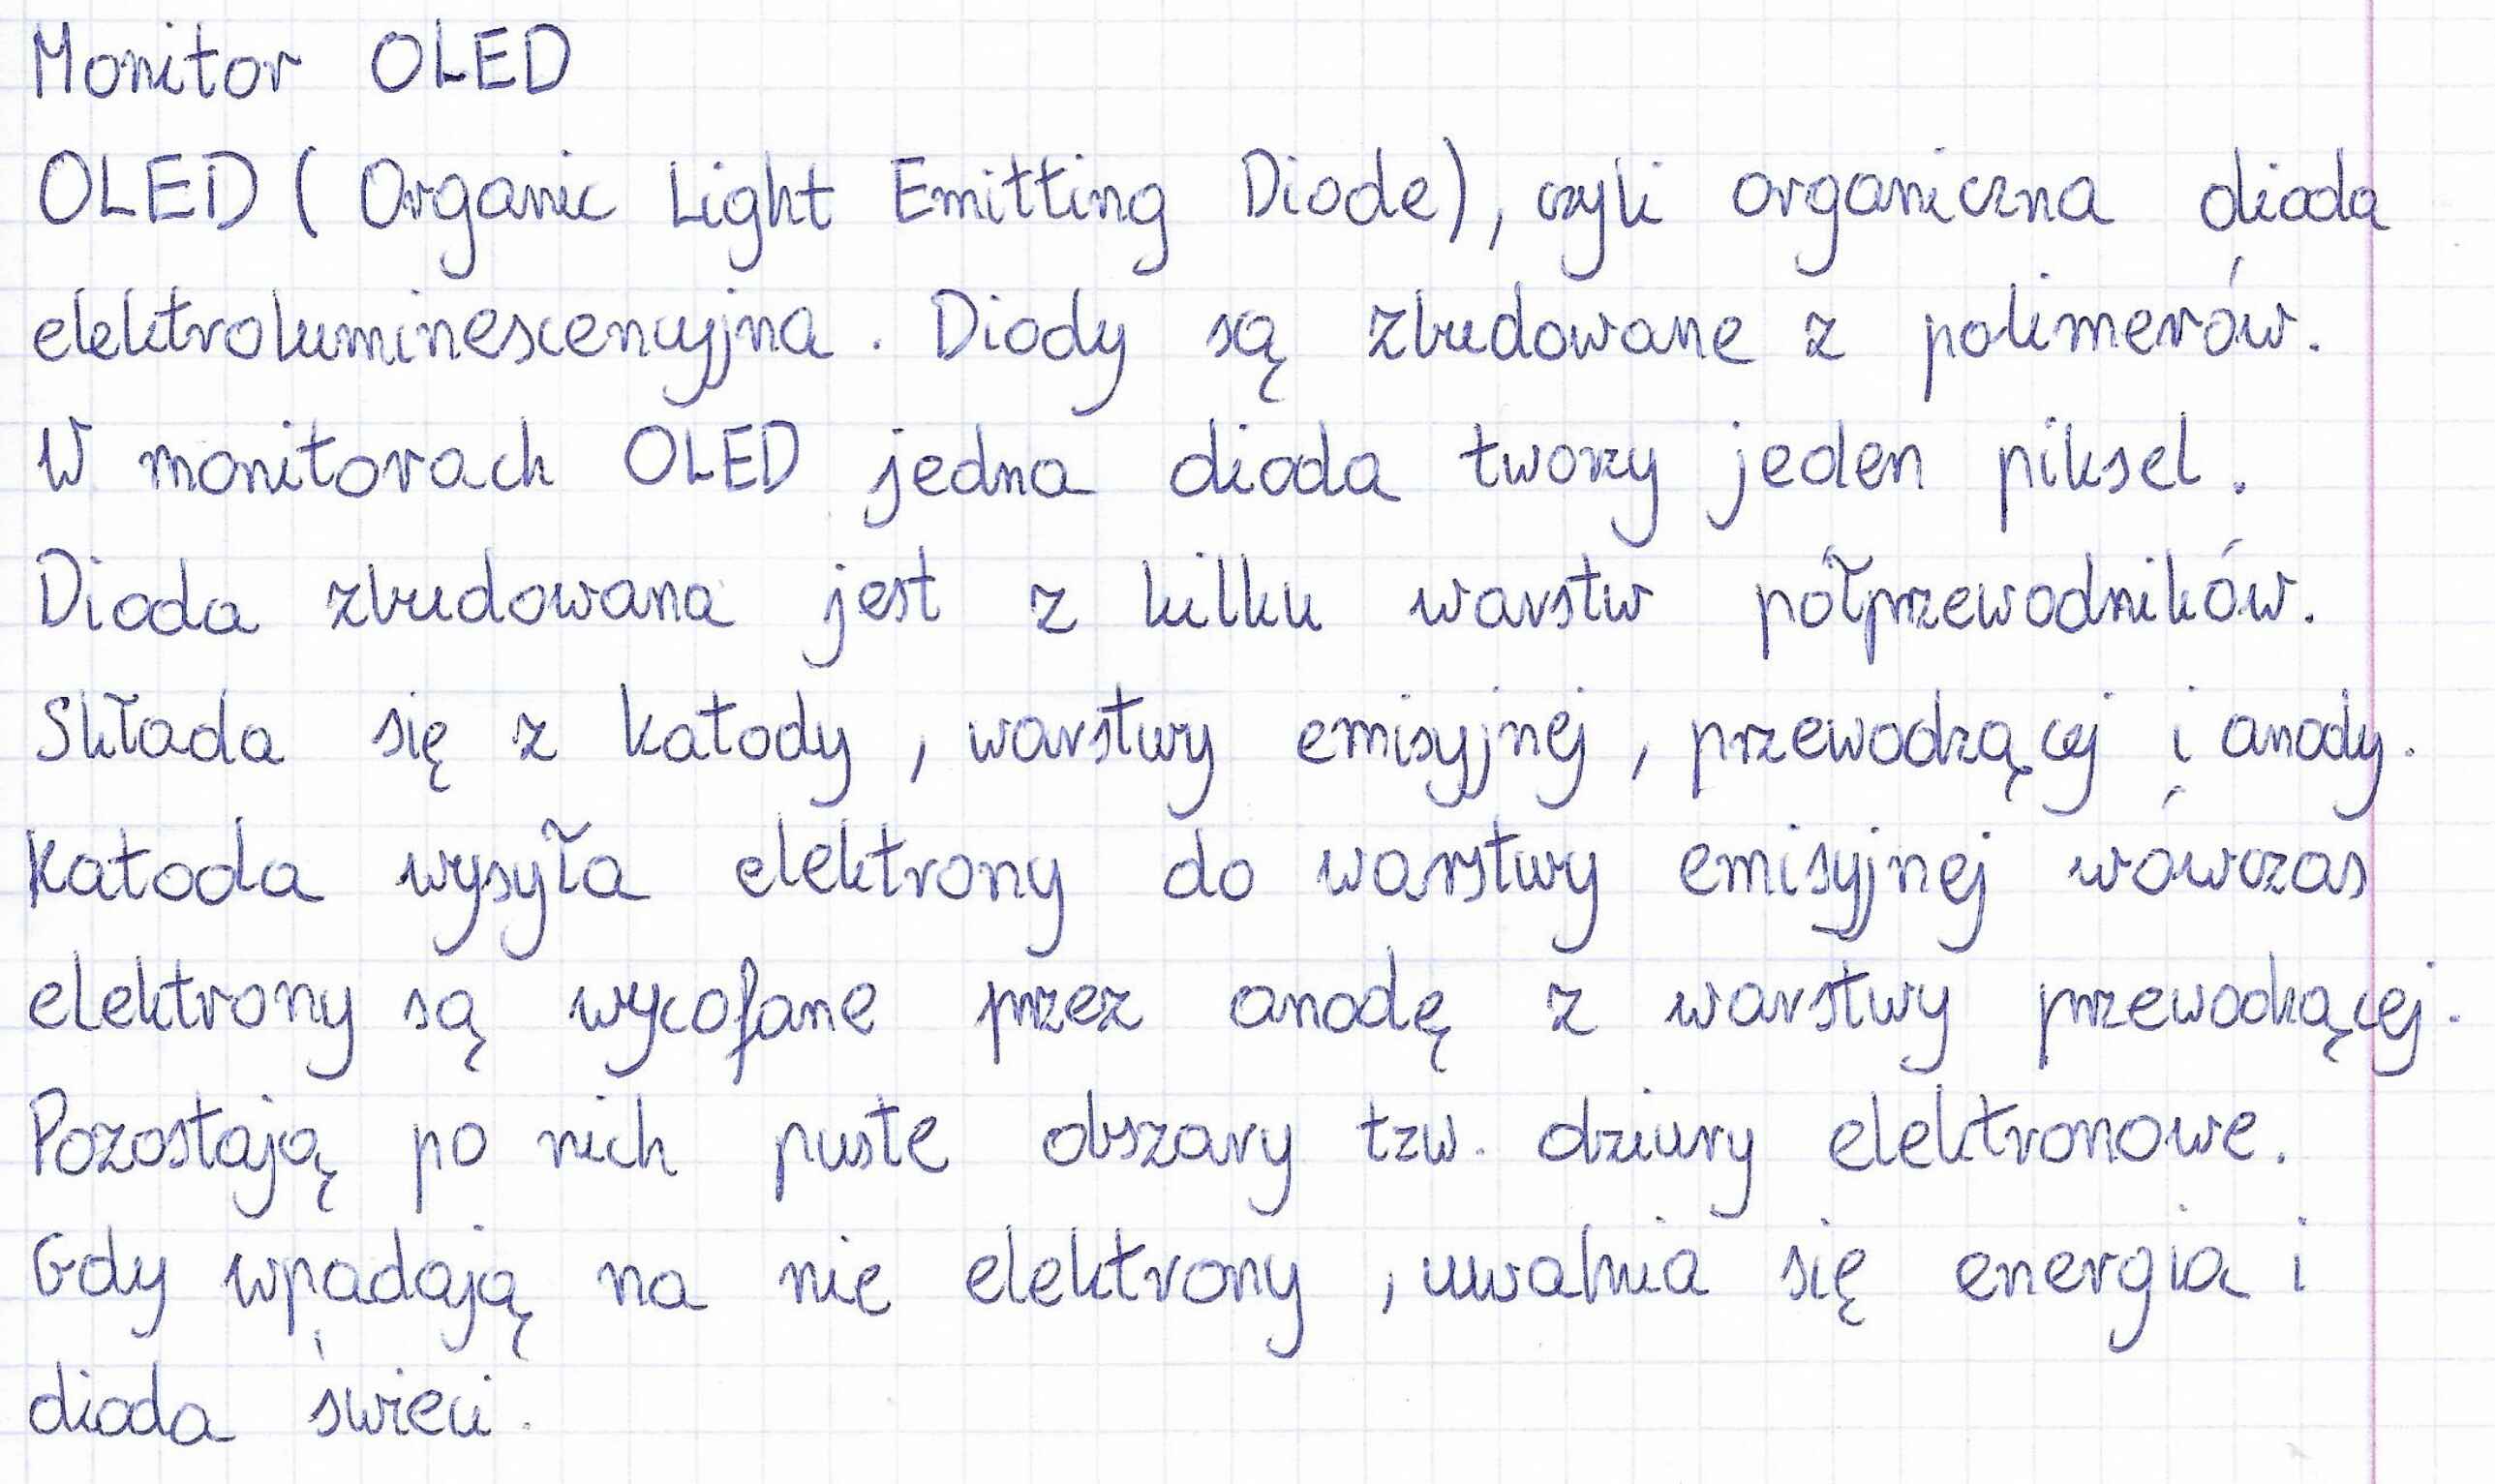 Monitor OLED
OLED ( Organic Light Emitting Diode), czyli organiczna dioda
elektroluminescencyjna. Diody są zbudowane z polimerów.
W monitorach OLED jedna dioda tworzy jeden piksel.
Dioda zbudowana jest z kilku warstw półprzewodników.
Składa się z katody, warstwy emisyjnej, przewodzącej i anody.
Katoda wysyła elektrony do warstwy emisyjnej wówczas
elektrony są wycofane przez anodę z warstwy przewodzącej.
Pozostają po nich puste obszary tzw. dziury elektronowe.
Gdy wpadają na nie elektrony, uwalnia się energia i
dioda świeci.